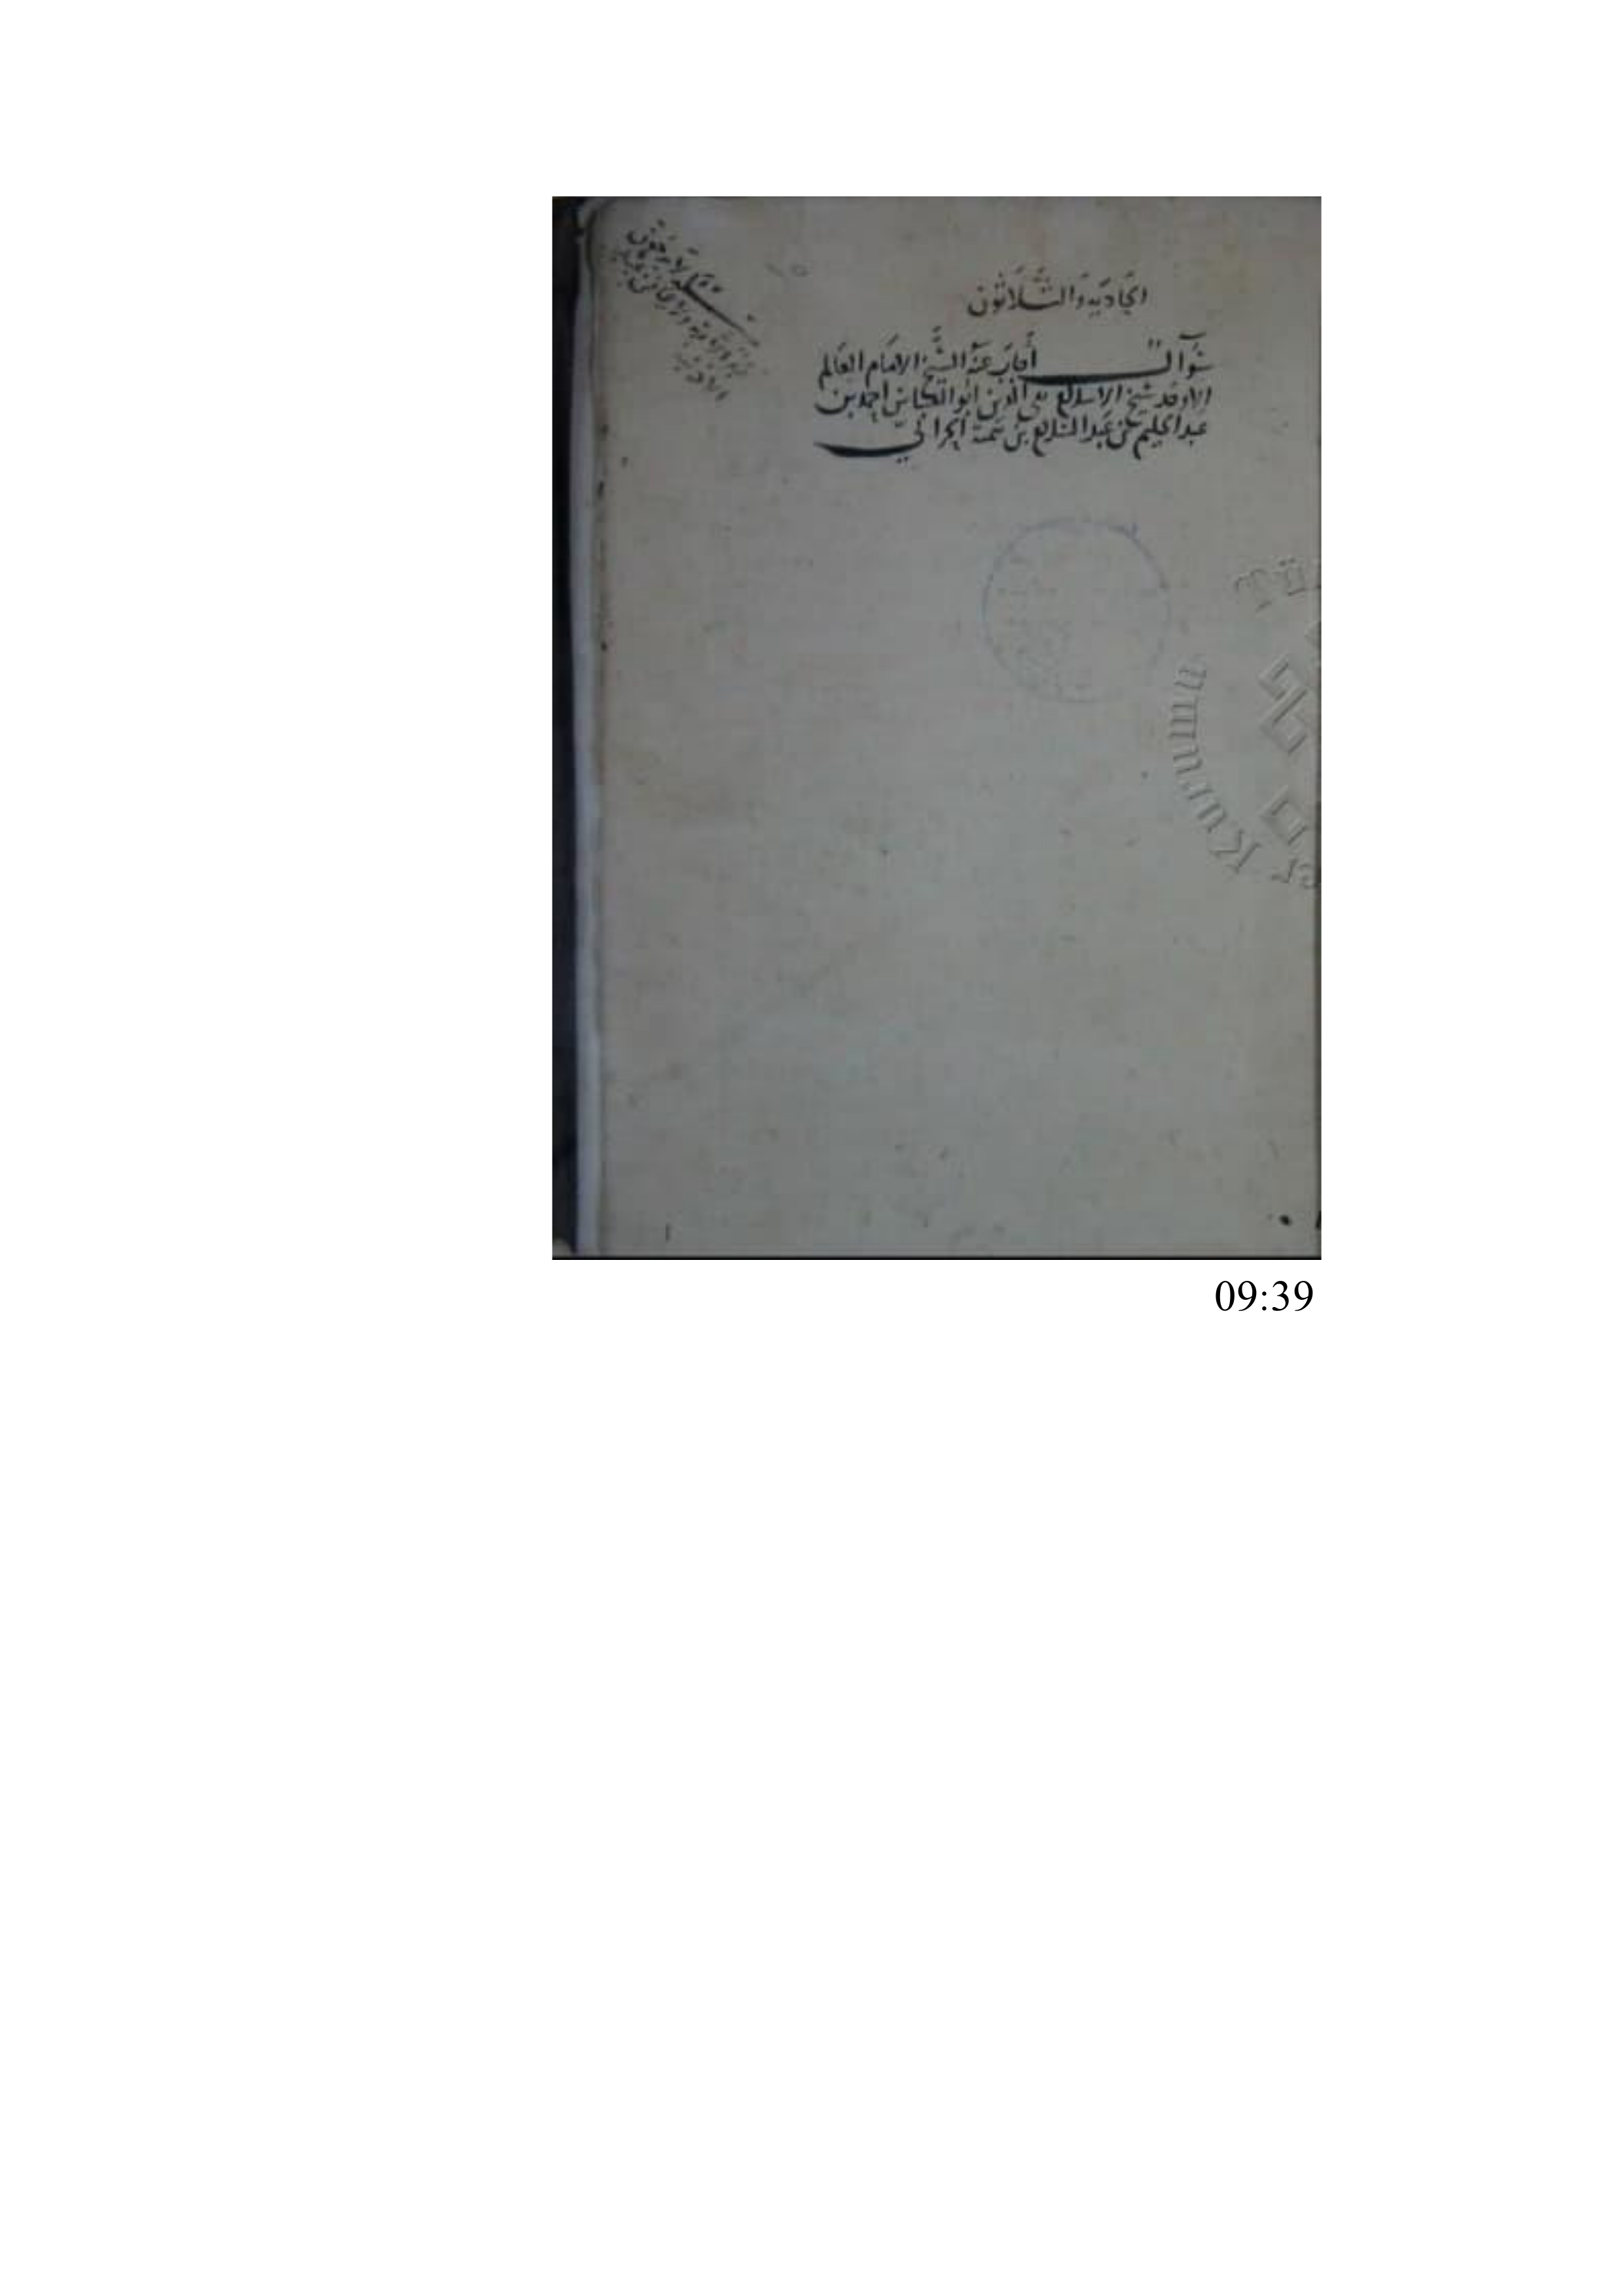 الحادية والثلاثون
سؤال أجاب عنه الشيخ الإمام العالم
الاوحد شيخ الاسلام تقي الدين ابو العباس احمد بن
عبد الحليم بن عبد السلام بن تيمية الحراني
er Kurumu
09:39